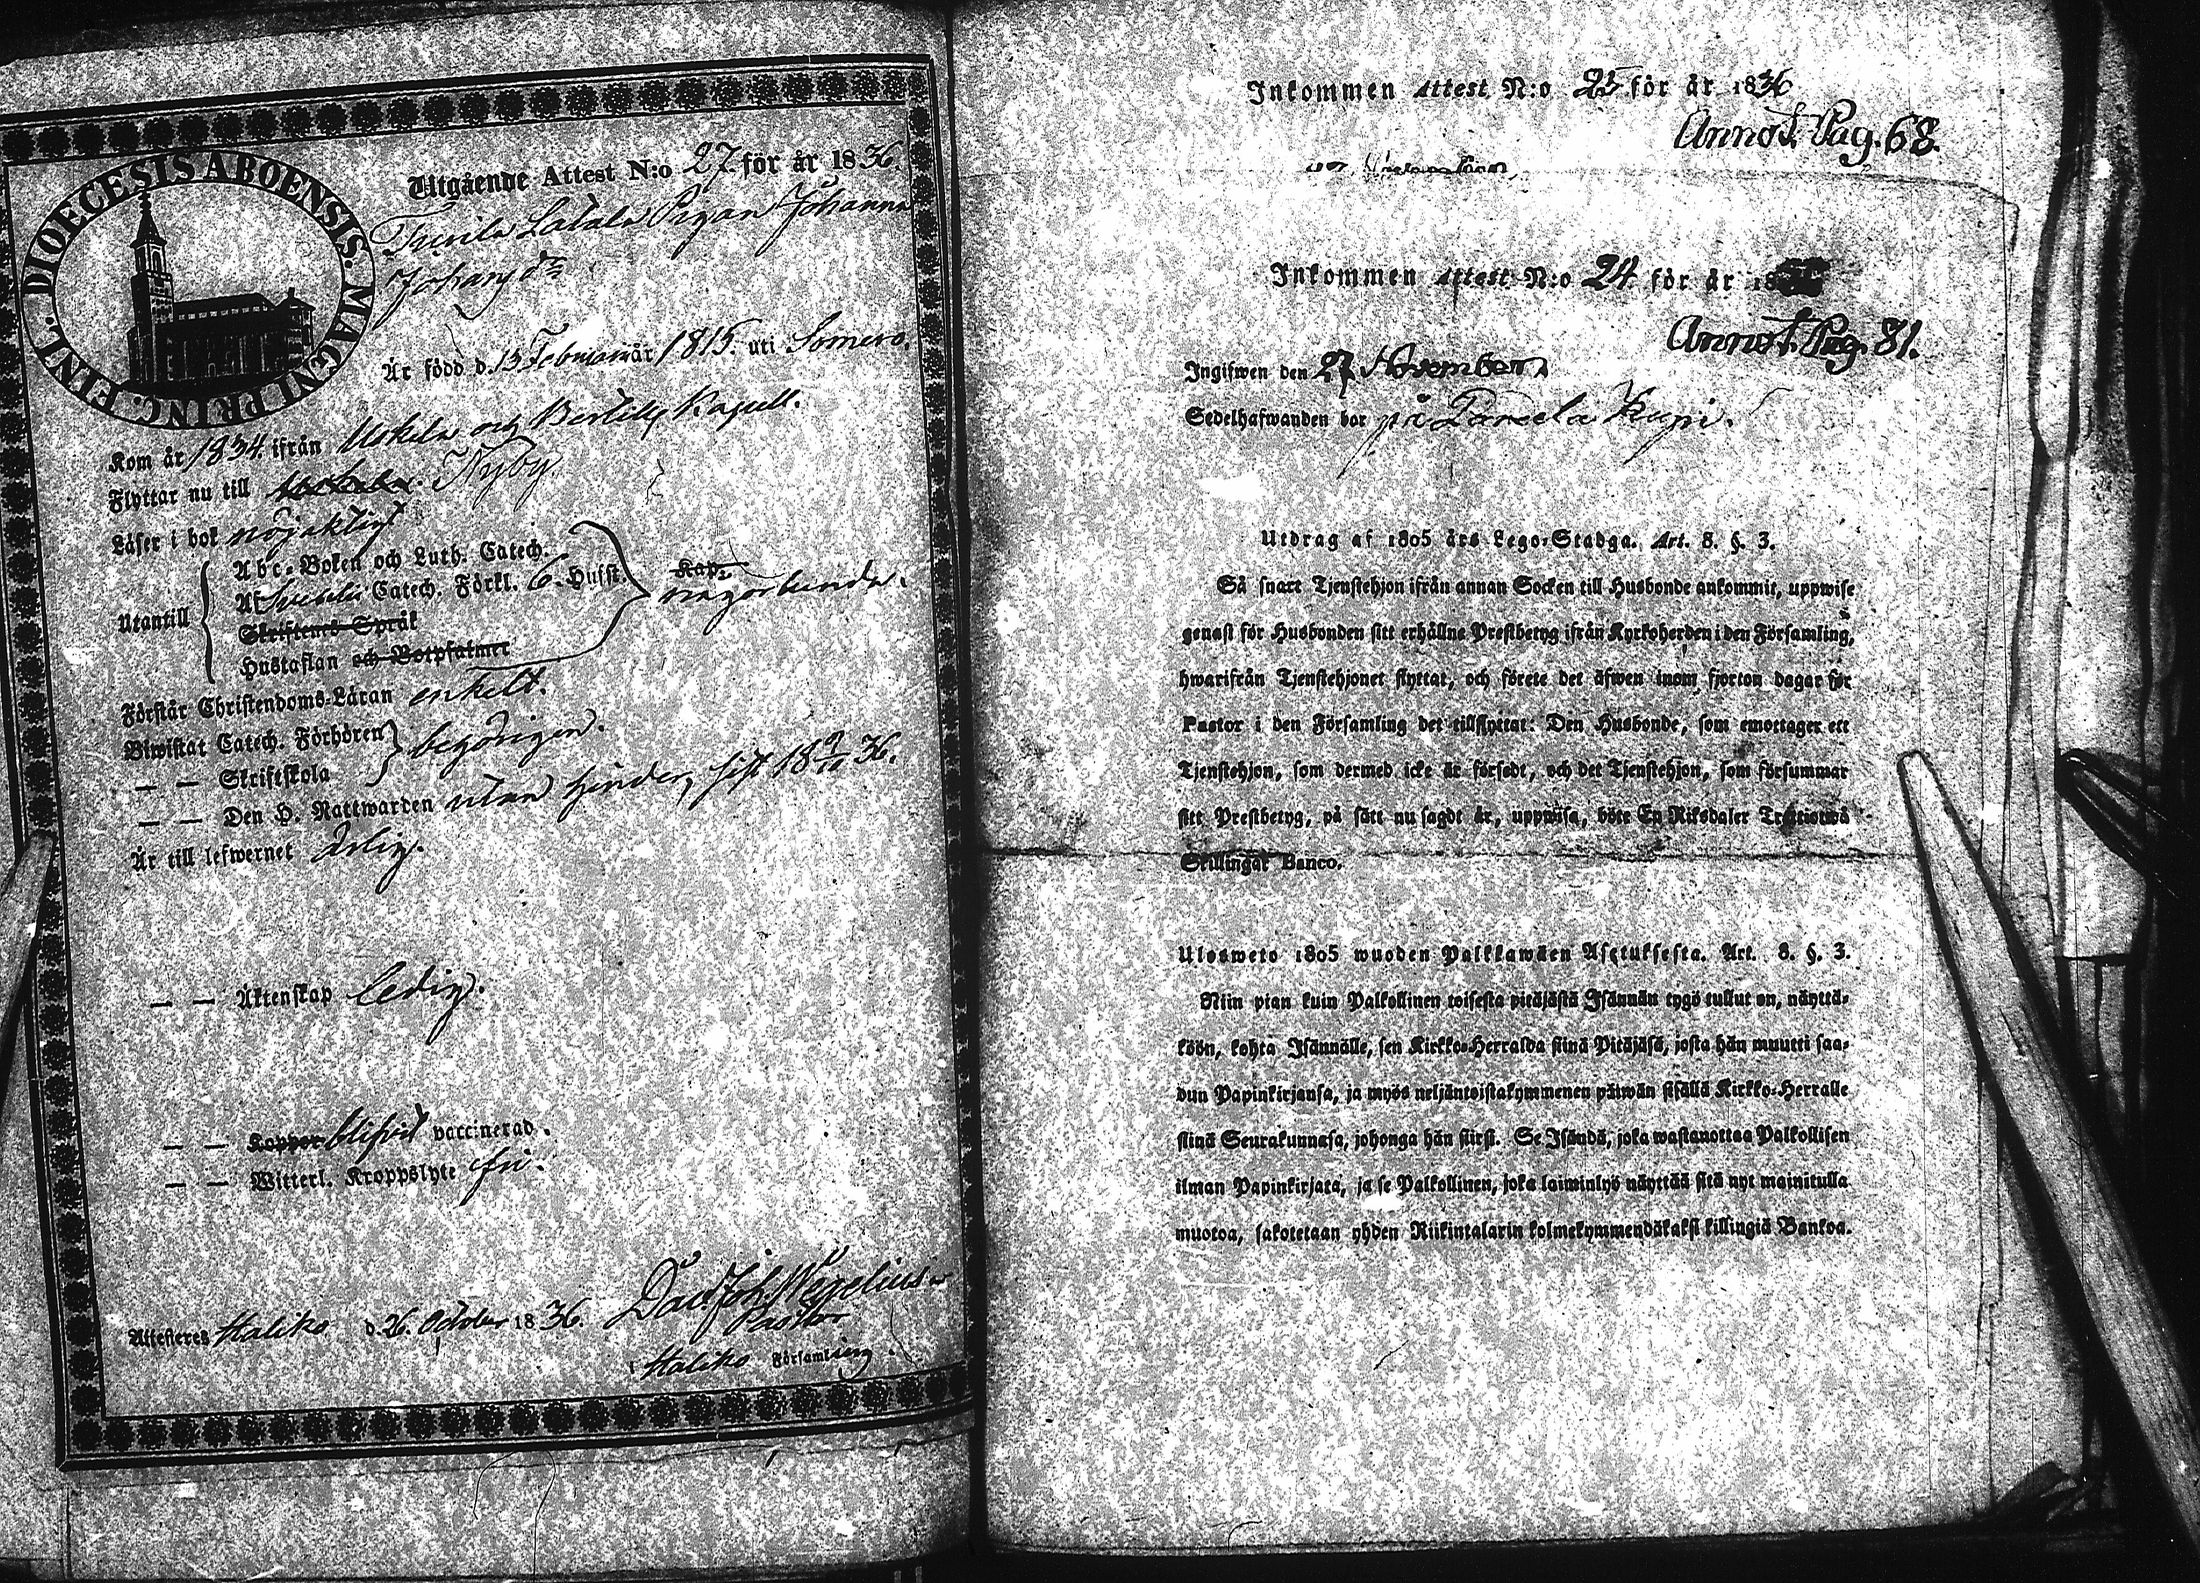 DIOECESIS ABOENSIS. MAGNI PRINC. FINL.
Utgående Attest N:o 27 för år 1836.
Pigan Johanna
Johansdr
Är född d. 13 Februarii år 1815. uti Somero.
Kom år 1834. ifrån Uskela och Bertily Kapell.
Flyttar nu till Nyby
Läser i bok nöjaktigt
Utantill
Abc-Boken och Luth. Catech.
Af Svebelii Catech. Förkl. 6. Hufst.
Skriftenes Språk
Hustaflan och Botpsalmer
Kap.
någorlunda.
Förstår Christendoms-Läran enkelt.
Biwistat Catech. Förhören
— — Skriftskola
behörigen.
— — Den H. Nattwarden utan hinder, sist 18 9/10 36.
Är till lefwernet Ärlig.
— — Äktenskap ledig.
— — Koppor blifvit vaccinerad.
— — Witterl. Kroppslyte fri.
Attesteras Haliko d. 26. October 1836. Dav. Joh. Wegelius
Pastor
i Haliko Församling.
Inkommen Attest N:o 25 för år 1836
Annot. Pag. 68.
Inkommen Attest N:o 24 för år 18
Annot. Pag. 81.
Ingifwen den 27 November
Sedelhafwanden bor på Kupi.
Utdrag af 1805 års Lego-Stadga. Art. 8. §. 3.
Så snart Tjenstehjon ifrån annan Socken till Husbonde ankommit, uppwise
genast för Husbonden sitt erhållne Prestbetyg ifrån Kyrkoherden i den Församling,
hwarifrån Tjenstehjonet flyttat, och förete det äfwen inom fjorton dagar för
Pastor i den Församling det tillflyttat: Den Husbonde, som emottager ett
Tjenstehjon, som dermed icke är försedt, och det Tjenstehjon, som försummar
sitt Prestbetyg, på sätt nu sagdt är, uppwisa, böte En Riksdaler Trettiotwå
Skillingar Banco.
Ulosweto 1805 wuoden Palkkawäen Asetuksesta. Art. 8. §. 3.
Niin pian kuin Palkollinen toisesta pitäjästä Isännän tygö tullut on, näyttä-
köön, kohta Isännälle, sen Kirkko-Herralda siinä Pitäjäsä, josta hän muutti saa-
dun Papinkirjansa, ja myös neljäntoistakymmenen päiwän sisällä Kirkko-Herralle
siinä Seurakunnasa, johonga hän siirsi. Se Isändä, joka wastanottaa Palkollisen
ilman Papinkirjata, ja se Palkollinen, joka laiminlyö näyttää sitä nyt mainitulla
muotoa, sakotetaan yhden Riikintalarin kolmekymmendäkaksi killingiä Bankoa.